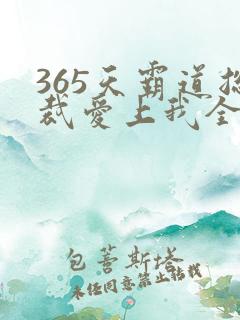 365天霸道总
裁爱上我全
包蓍斯塔
未经同意禁止转载